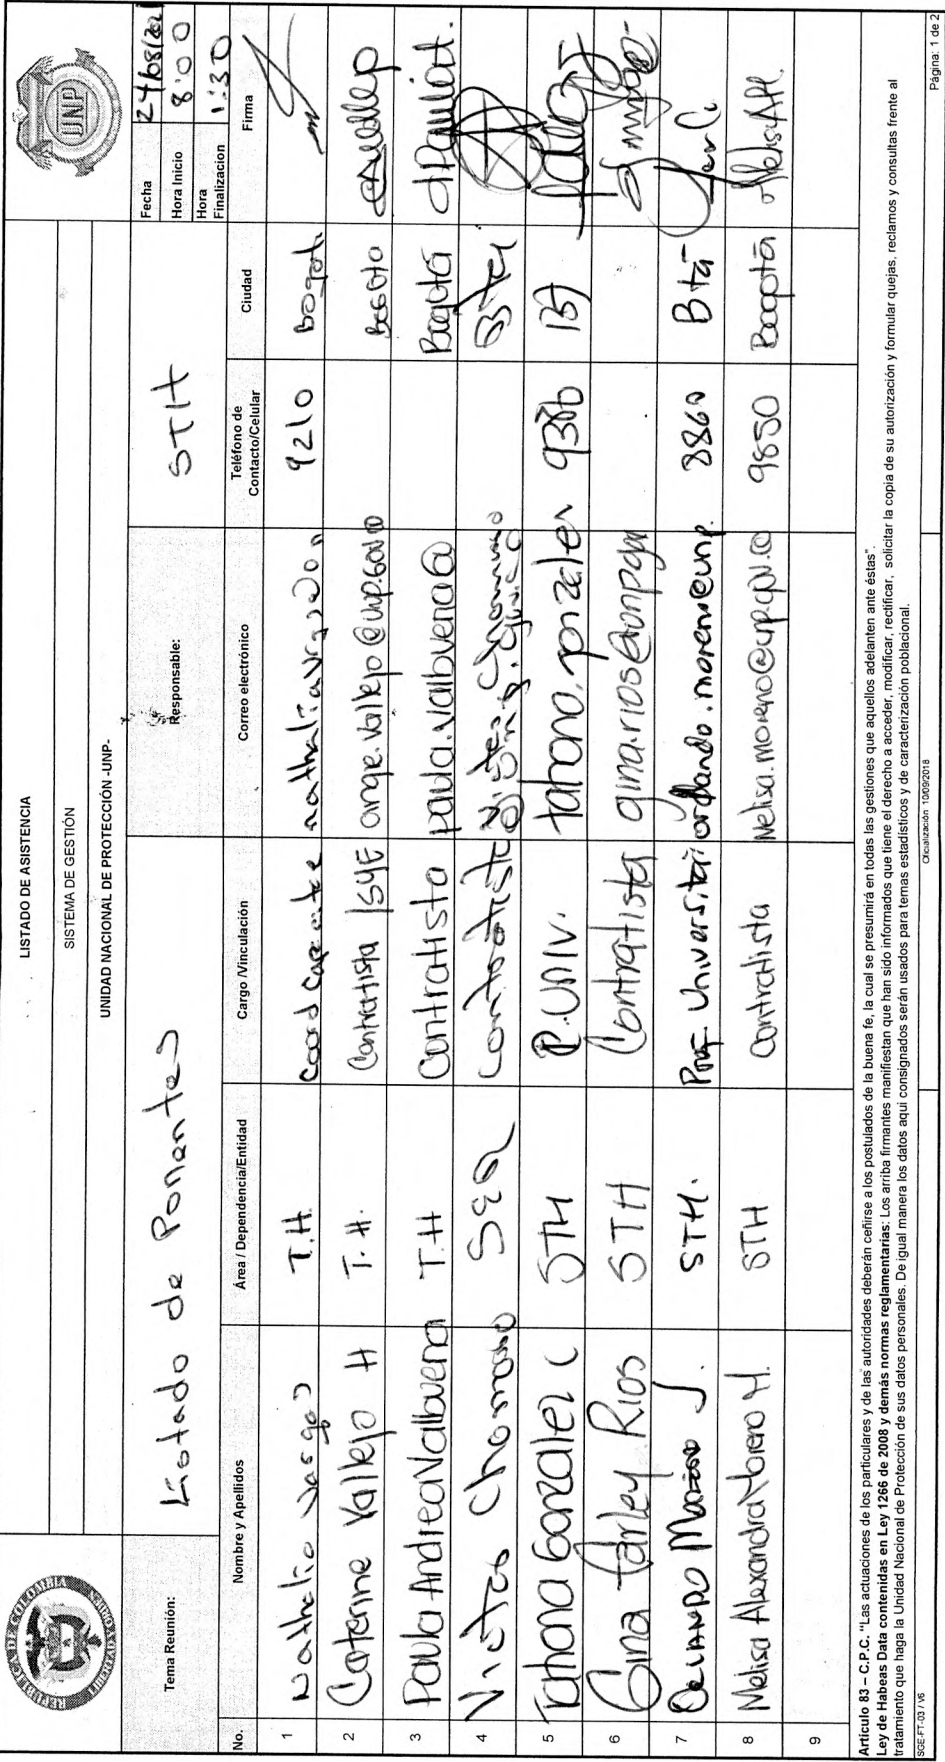 REPUBLICA DE COLOMBIA
LISTADO DE ASISTENCIA
SISTEMA DE GESTIÓN
UNIDAD NACIONAL DE PROTECCIÓN -UNP-
UNP
Tema Reunión: Listado de Ponentes Responsable: STH
Fecha 24/08/202
Hora Inicio 8:00
Hora Finalizacion 1:30
No. Nombre y Apellidos Área / Dependencia/Entidad Cargo /Vinculación Correo electrónico Teléfono de Contacto/Celular Ciudad Firma
1 Nathalia Vargas T.H. Coord 9210 Bogot.
2 Caterine Vallejo H T.H. Contratista ange.vallejo@unp.gov.co Bogota
3 Paula Andrea Valbuena T.H Contratista paula.valbuena@ Bogotá
4 Victor Chamorro Contratista
5 González C STH P. Univ. Bt
6 Gina Parley Rios STH Contratista
7 Orlando Moreno J. STH. Prof. Universitari orlando.moreno@unp. 8860 Btá
8 Melisa Alexandra Moreno H. STH Contratista Melisa.moreno@unp.gov.co 9850 Bogotá
9
Artículo 83 – C.P.C. "Las actuaciones de los particulares y de las autoridades deberán ceñirse a los postulados de la buena fe, la cual se presumirá en todas las gestiones que aquellos adelanten ante éstas".
Ley de Habeas Data contenidas en Ley 1266 de 2008 y demás normas reglamentarias: Los arriba firmantes manifiestan que han sido informados que tiene el derecho a acceder, modificar, rectificar, solicitar la copia de su autorización y formular quejas, reclamos y consultas frente al
tratamiento que haga la Unidad Nacional de Protección de sus datos personales. De igual manera los datos aquí consignados serán usados para temas estadísticos y de caracterización poblacional.
SGE-FT-03 / V6 Oficialización 10/09/2018 Página: 1 de 2